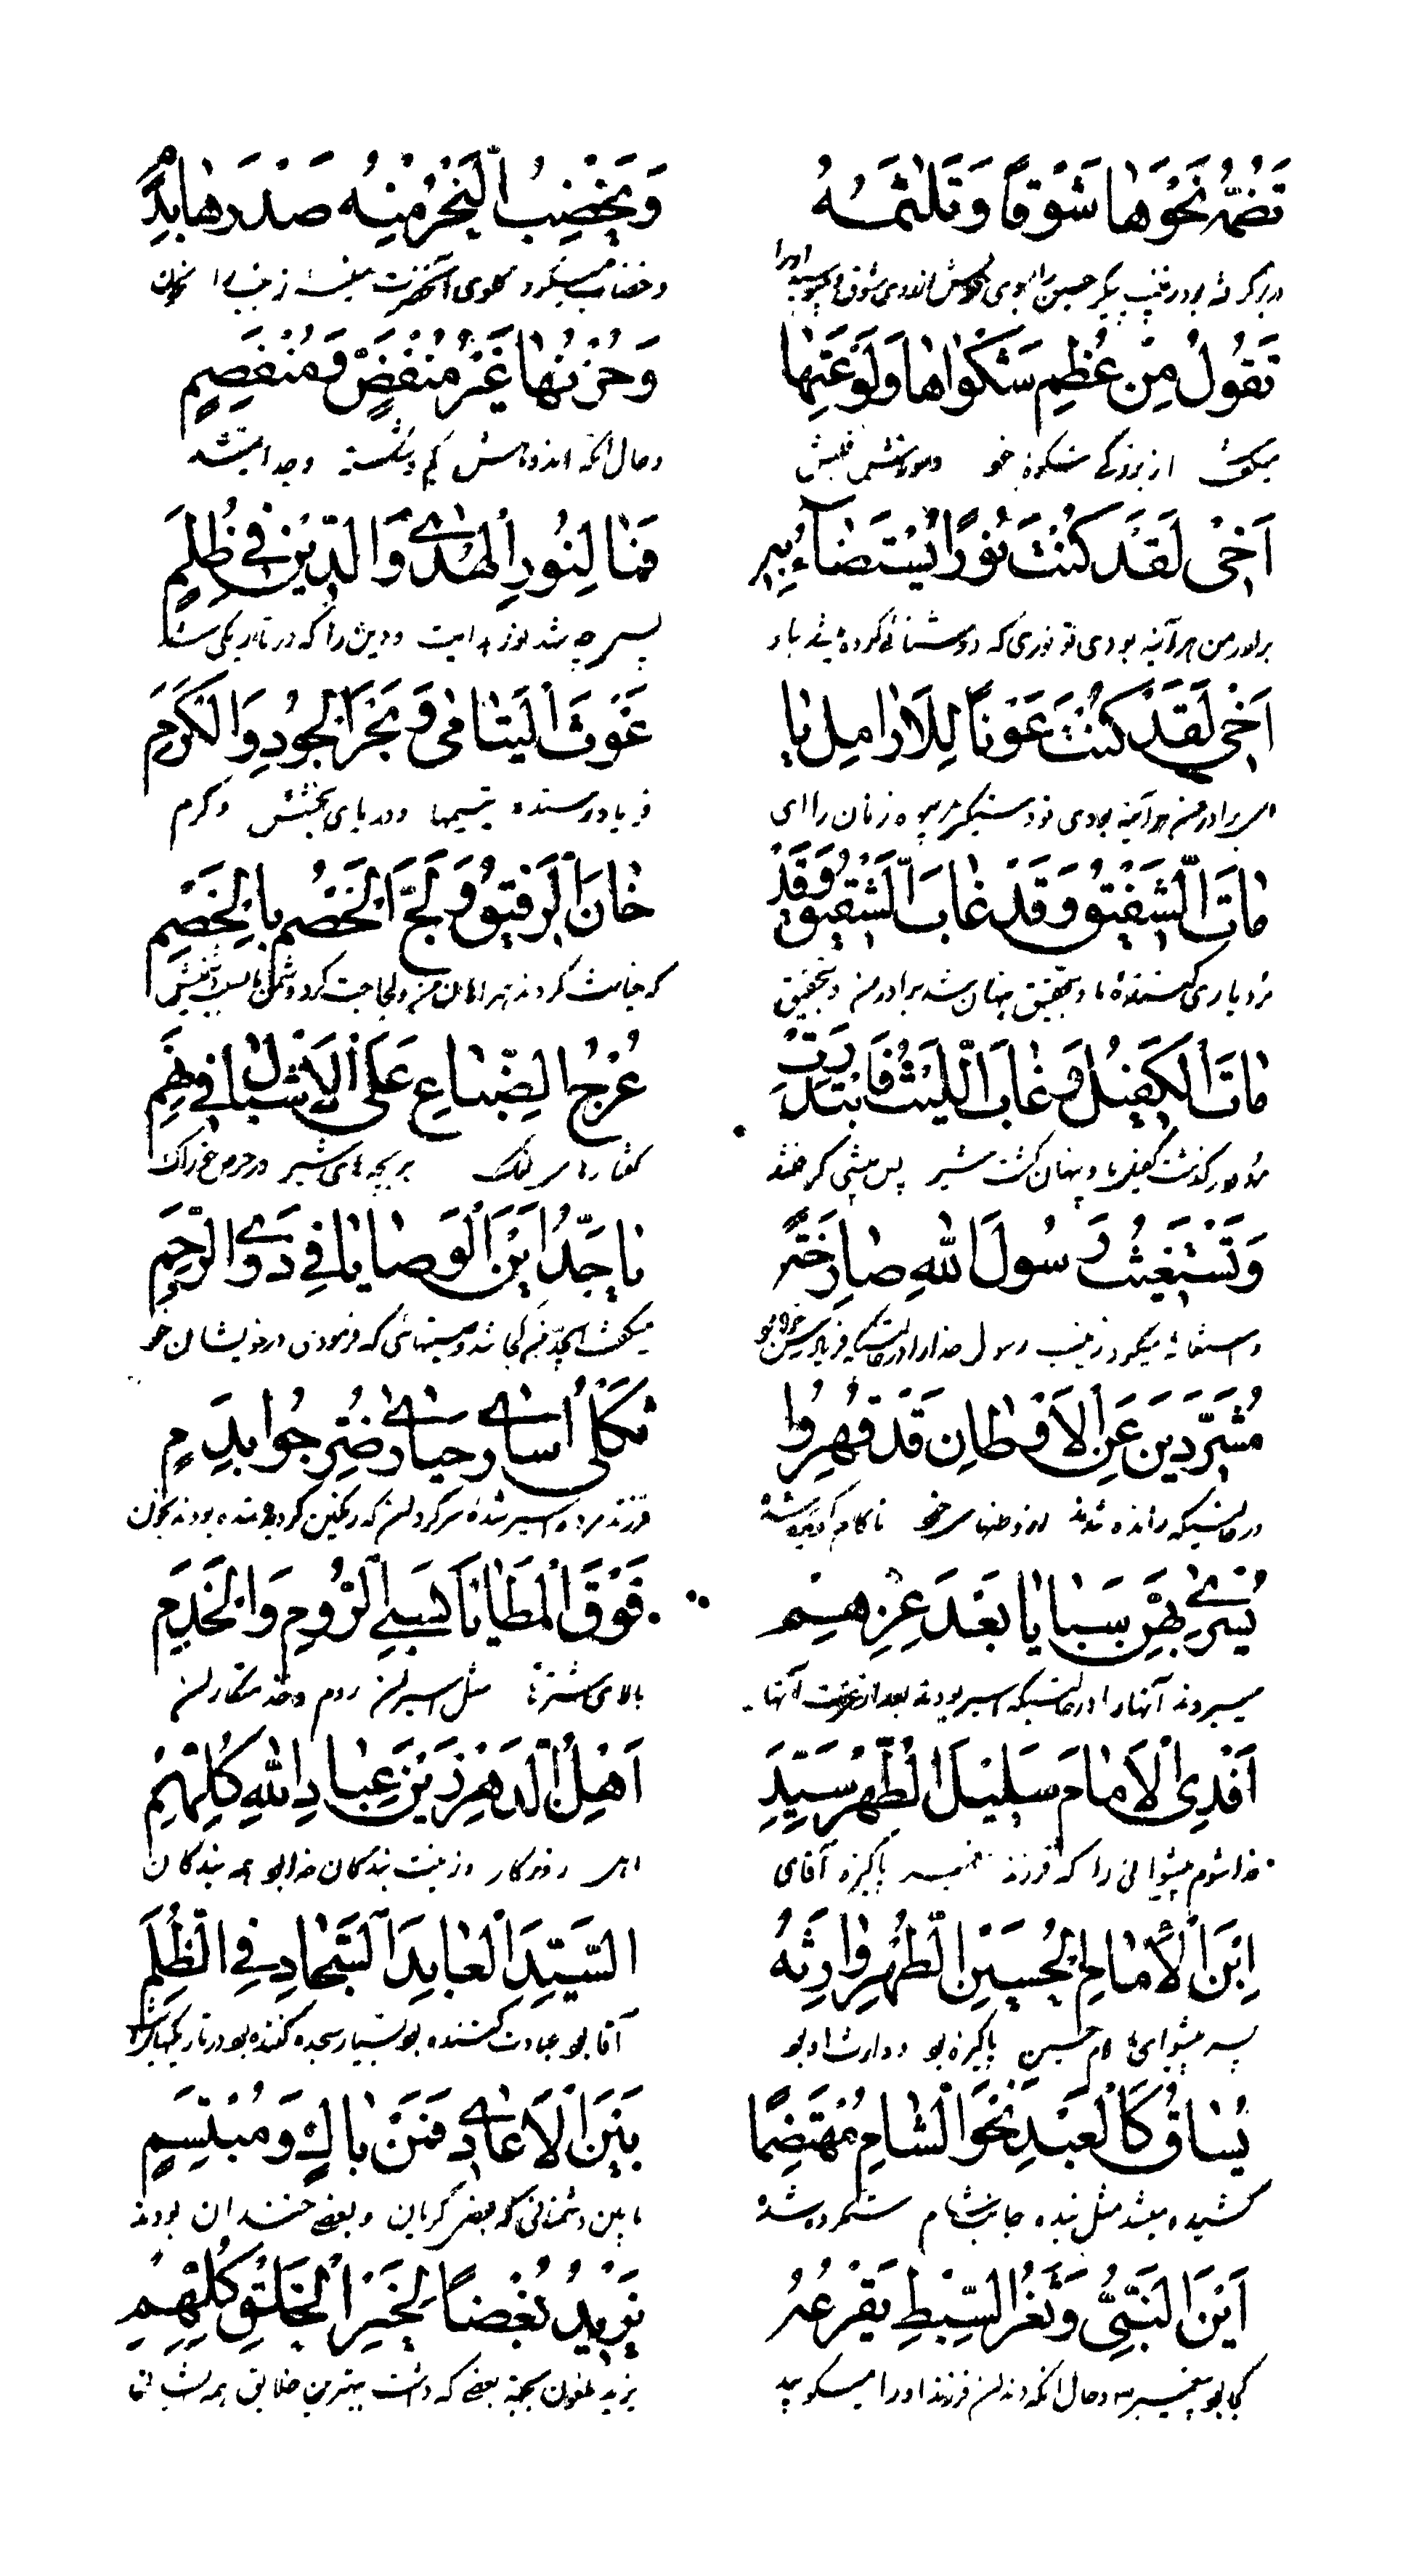 تَضُمُّهُ نَحْوَهَا شَوْقًا وَتَلْثِمُهُ وَيَخْضِبُ النَّحْرُ مِنْهُ صَدْرَهَا بِدَمِ
در بر گرفته بود زینب پیکر حسین را بسوی خودش از روی شوق و میبوسید او را و خضاب میکرد گلوی آنحضرت سینه زینب را بخون
تَقُولُ مِنْ عُظْمِ شَكْوَاهَا وَلَوْعَتِهَا وَحُزْنُهَا غَيْرُ مُنْفَضٍّ وَمُنْفَصِمِ
میگفت از بزرگی شکوه خود و سوزش قلبش و حال آنکه اندوهش کم و شکسته و جدا نمیشد
اَخِى لَقَدْ كُنْتَ نُورًا يُسْتَضَاءُ بِهِ فَمَا لِنُورِ الْهُدَىٰ وَالدِّينِ فِى ظُلَمِ
برادر من هر آینه بودی تو نوری که روشنائی کرده میشد باو پس چه شد نور هدایت و دین را که در تاریکی
اَخِى لَقَدْ كُنْتَ عَوْنًا لِلْاَرَامِلِ يَا غَوْثَ الْيَتَامٰى وَبَحْرَ الْجُودِ وَالْكَرَمِ
برادر من هر آینه بودی تو دستگیر بیوه زنان را ای فریاد رسنده یتیمها و دریای بخشش و کرم
مَاتَ الشَّفِيقُ وَقَدْ غَابَ الشَّقِيقُ وَقَدْ خَانَ الرَّفِيقُ وَلَجَّ الْخَصْمُ بِالْخَصِمِ
مرد یاری کننده ما و بتحقیق پنهان شد برادر من و بتحقیق که خیانت کردند همراهان من و لجاجت کرد دشمن
مَاتَ الْكَفِيلُ وَغَابَ اللَّيْثُ فَابْتَدَرَتْ عُرْجُ الضِّبَاعِ عَلَى الْاَشْبَالِ فِى نَهَمِ
مرد و در گذشت کفیل ما و پنهان گشت شیر پس پیشی گرفتند کفتارهای لنگ بر بچه های شیر در حرص
وَتَسْتَغِيثُ رَسُولَ اللهِ صَارِخَةً يَا جَدُّ اَيْنَ الْوَصَايَا فِى ذَوِى الرَّحِمِ
و استغاثه میکرد زینب رسول خدا را در حالتیکه فریاد میگفت ای جد من کجا شد وصیتهائی که فرمودی در خویشان خود
مُشَرَّدِينَ عَنِ الْاَوْطَانِ قَدْ قُهِرُوا ثَكْلٰى اُسَارٰى حَيَارٰى ضُرِّجُوا بِدَمِ
در حالتیکه رانده شدند از وطنهای خود ناکام فرزند مرده اسیر شده سرگردان که رنگین کرده شده بودند بخون
يُسْرٰى بِهِنَّ سَبَايَا بَعْدَ عِزِّهِمِ فَوْقَ الْمَطَايَا كَسَبْىِ الرُّومِ وَالْخَدَمِ
میبردند آنها را در حالتیکه اسیر بودند بعد از عزت آنها بالای شترها مثل اسیران روم و خدمتکاران
اَفْدِى الْاِمَامَ سَلِيلَ الطُّهْرِ سَيِّدَ اَهْلِ الدَّهْرِ زَيْنَ عِبَادِ اللهِ كُلِّهِمِ
فدا شوم پیشوائی را که فرزند پاکیزه آقای اهل روزگار و زینت بندگان خدا بود همه بندگان
اِبْنَ الْاِمَامِ الْحُسَيْنِ الطُّهْرِ وَارِثَهُ السَّيِّدَ الْعَابِدَ السَّجَّادَ فِى الظُّلَمِ
پسر پیشوای امام حسین پاکیزه بود و وارث او بود آقا بود عبادت کننده بود بسیار سجده کننده بود در تاریکیها
يُسَاقُ كَالْعَبْدِ نَحْوَ الشَّامِ مُهْتَضِمًا بَيْنَ الْاَعَادِى فَمِنْ بَاكٍ وَمُبْتَسِمِ
کشیده میشد مثل بنده جانب شام ستم کرده شده مابین دشمنانی که بعضی گریان و بعضی خندان بودند
اَيْنَ النَّبِىُّ وَثَغْرُ السِّبْطِ يَقْرَعُهُ يَزِيدُ بُغْضًا لِخَيْرِ الْخَلْقِ كُلِّهِمِ
کجا بود پیغمبر و حال آنکه دندان فرزند او را میکوبید یزید ملعون بجهة بغضی که داشت بهترین خلایق همه ایشان